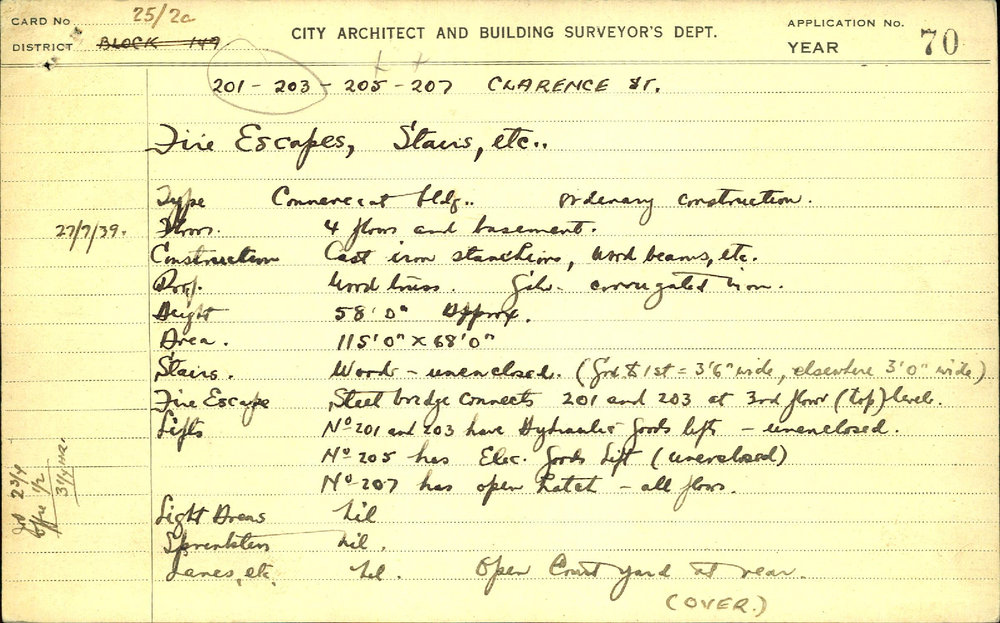 CARD No 25/2a
CITY ARCHITECT AND BUILDING SURVEYOR'S DEPT.
APPLICATION No.
DISTRICT BLOCK 149
YEAR 70
201 - 203 - 205 - 207 CLARENCE ST.
Fire Escapes, Stairs, etc..
Type Commercial bldg.. ordinary construction.
27/7/39. Floors. 4 floors and basement.
Construction Cast iron stanchions, wood beams, etc.
Roof. Wood truss. Galv. corrugated iron.
Height 58'0" Approx.
Area. 115'0" x 68'0"
Stairs. Wood - unenclosed. (Grd to 1st = 3'6" wide, elsewhere 3'0" wide)
Fire Escape Steel bridge connects 201 and 203 at 3rd floor (top) level.
Lifts No 201 and 203 have Hydraulic goods lifts - unenclosed.
No 205 has Elec. Goods Lift (unenclosed)
No 207 has open hatch - all floors.
Light Areas Nil
Sprinklers Nil.
Lanes, etc. Nil. Open Court yard at rear.
(OVER.)